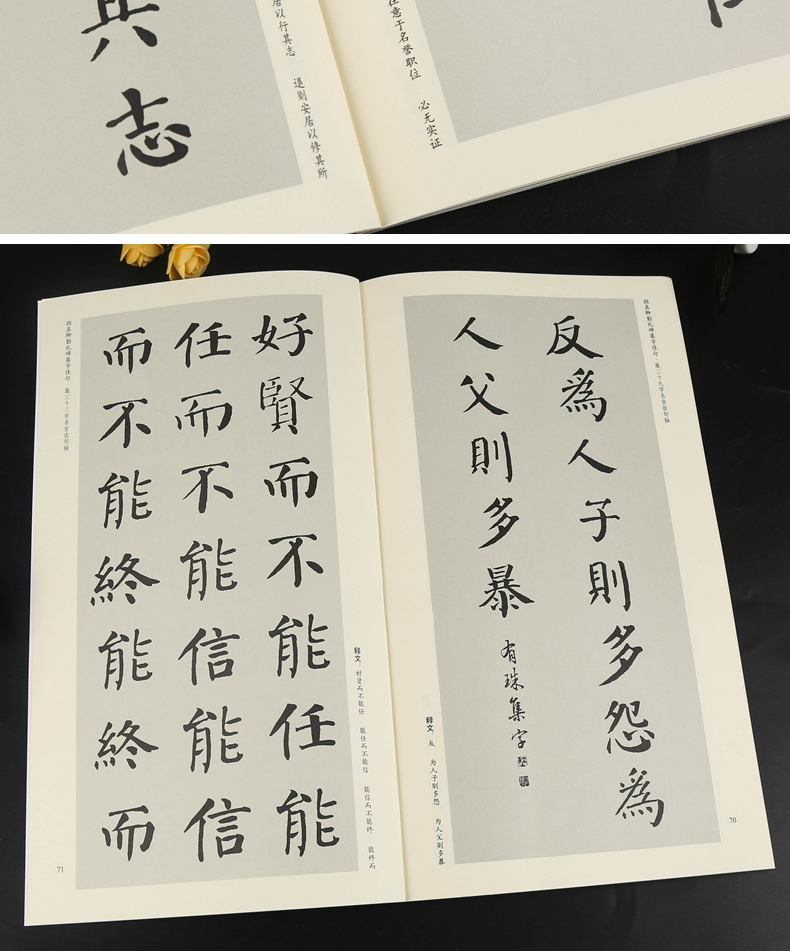 志
居以行其志 退则安居以修其所
任意于名誉职位 必无实证
颜真卿勤礼碑集字佳句·集二十九字名言佳句轴
反為人子則多怨為
人父則多暴
有珠集字
释文：反 为人子则多怨 为人父则多暴
70
好賢而不能任能
任而不能信能信
而不能終能終而
释文：好贤而不能任 能任而不能信 能信而不能终 能终而
颜真卿勤礼碑集字佳句·集二十三字名言佳句轴
71